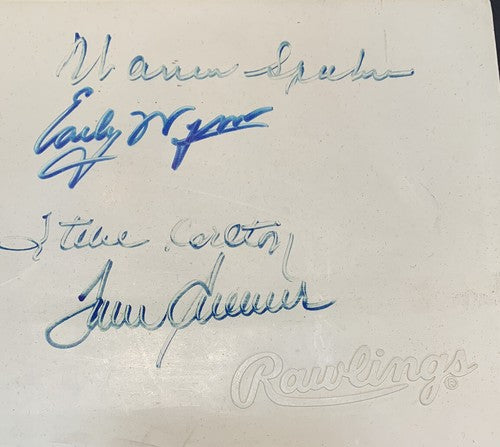 Warren Spahn
Early Wynn
Steve Carlton
Tom Seaver
Rawlings ®